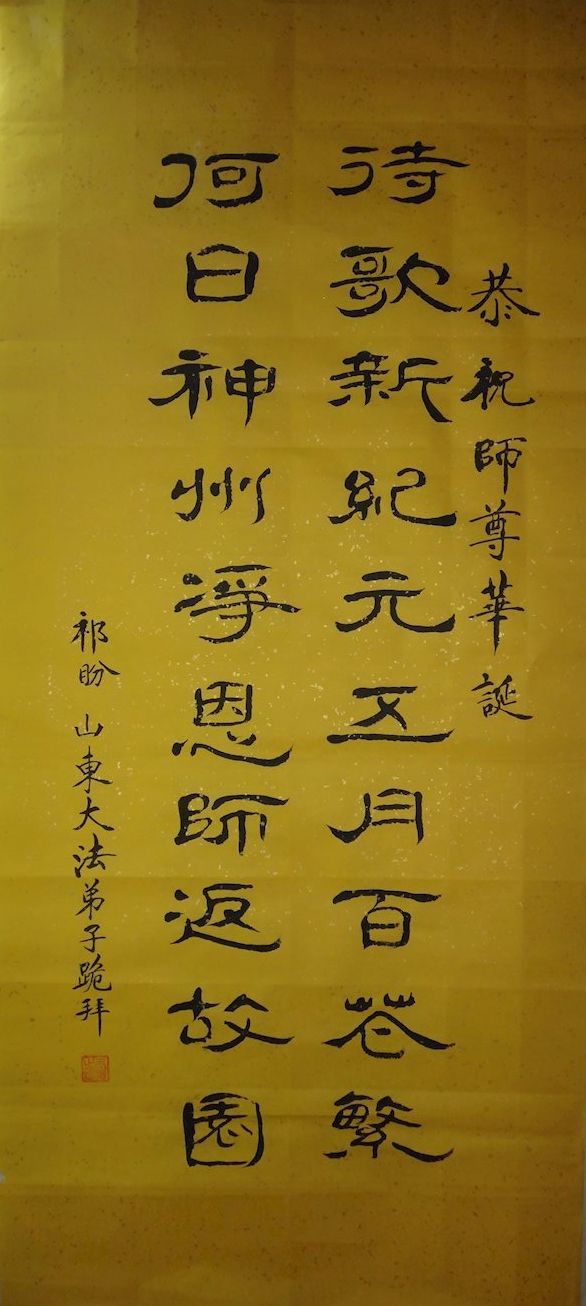 恭祝師尊華誕
待歌新紀元五月百花繁
何日神州淨恩師返故園
祁盼 山東大法弟子跪拜